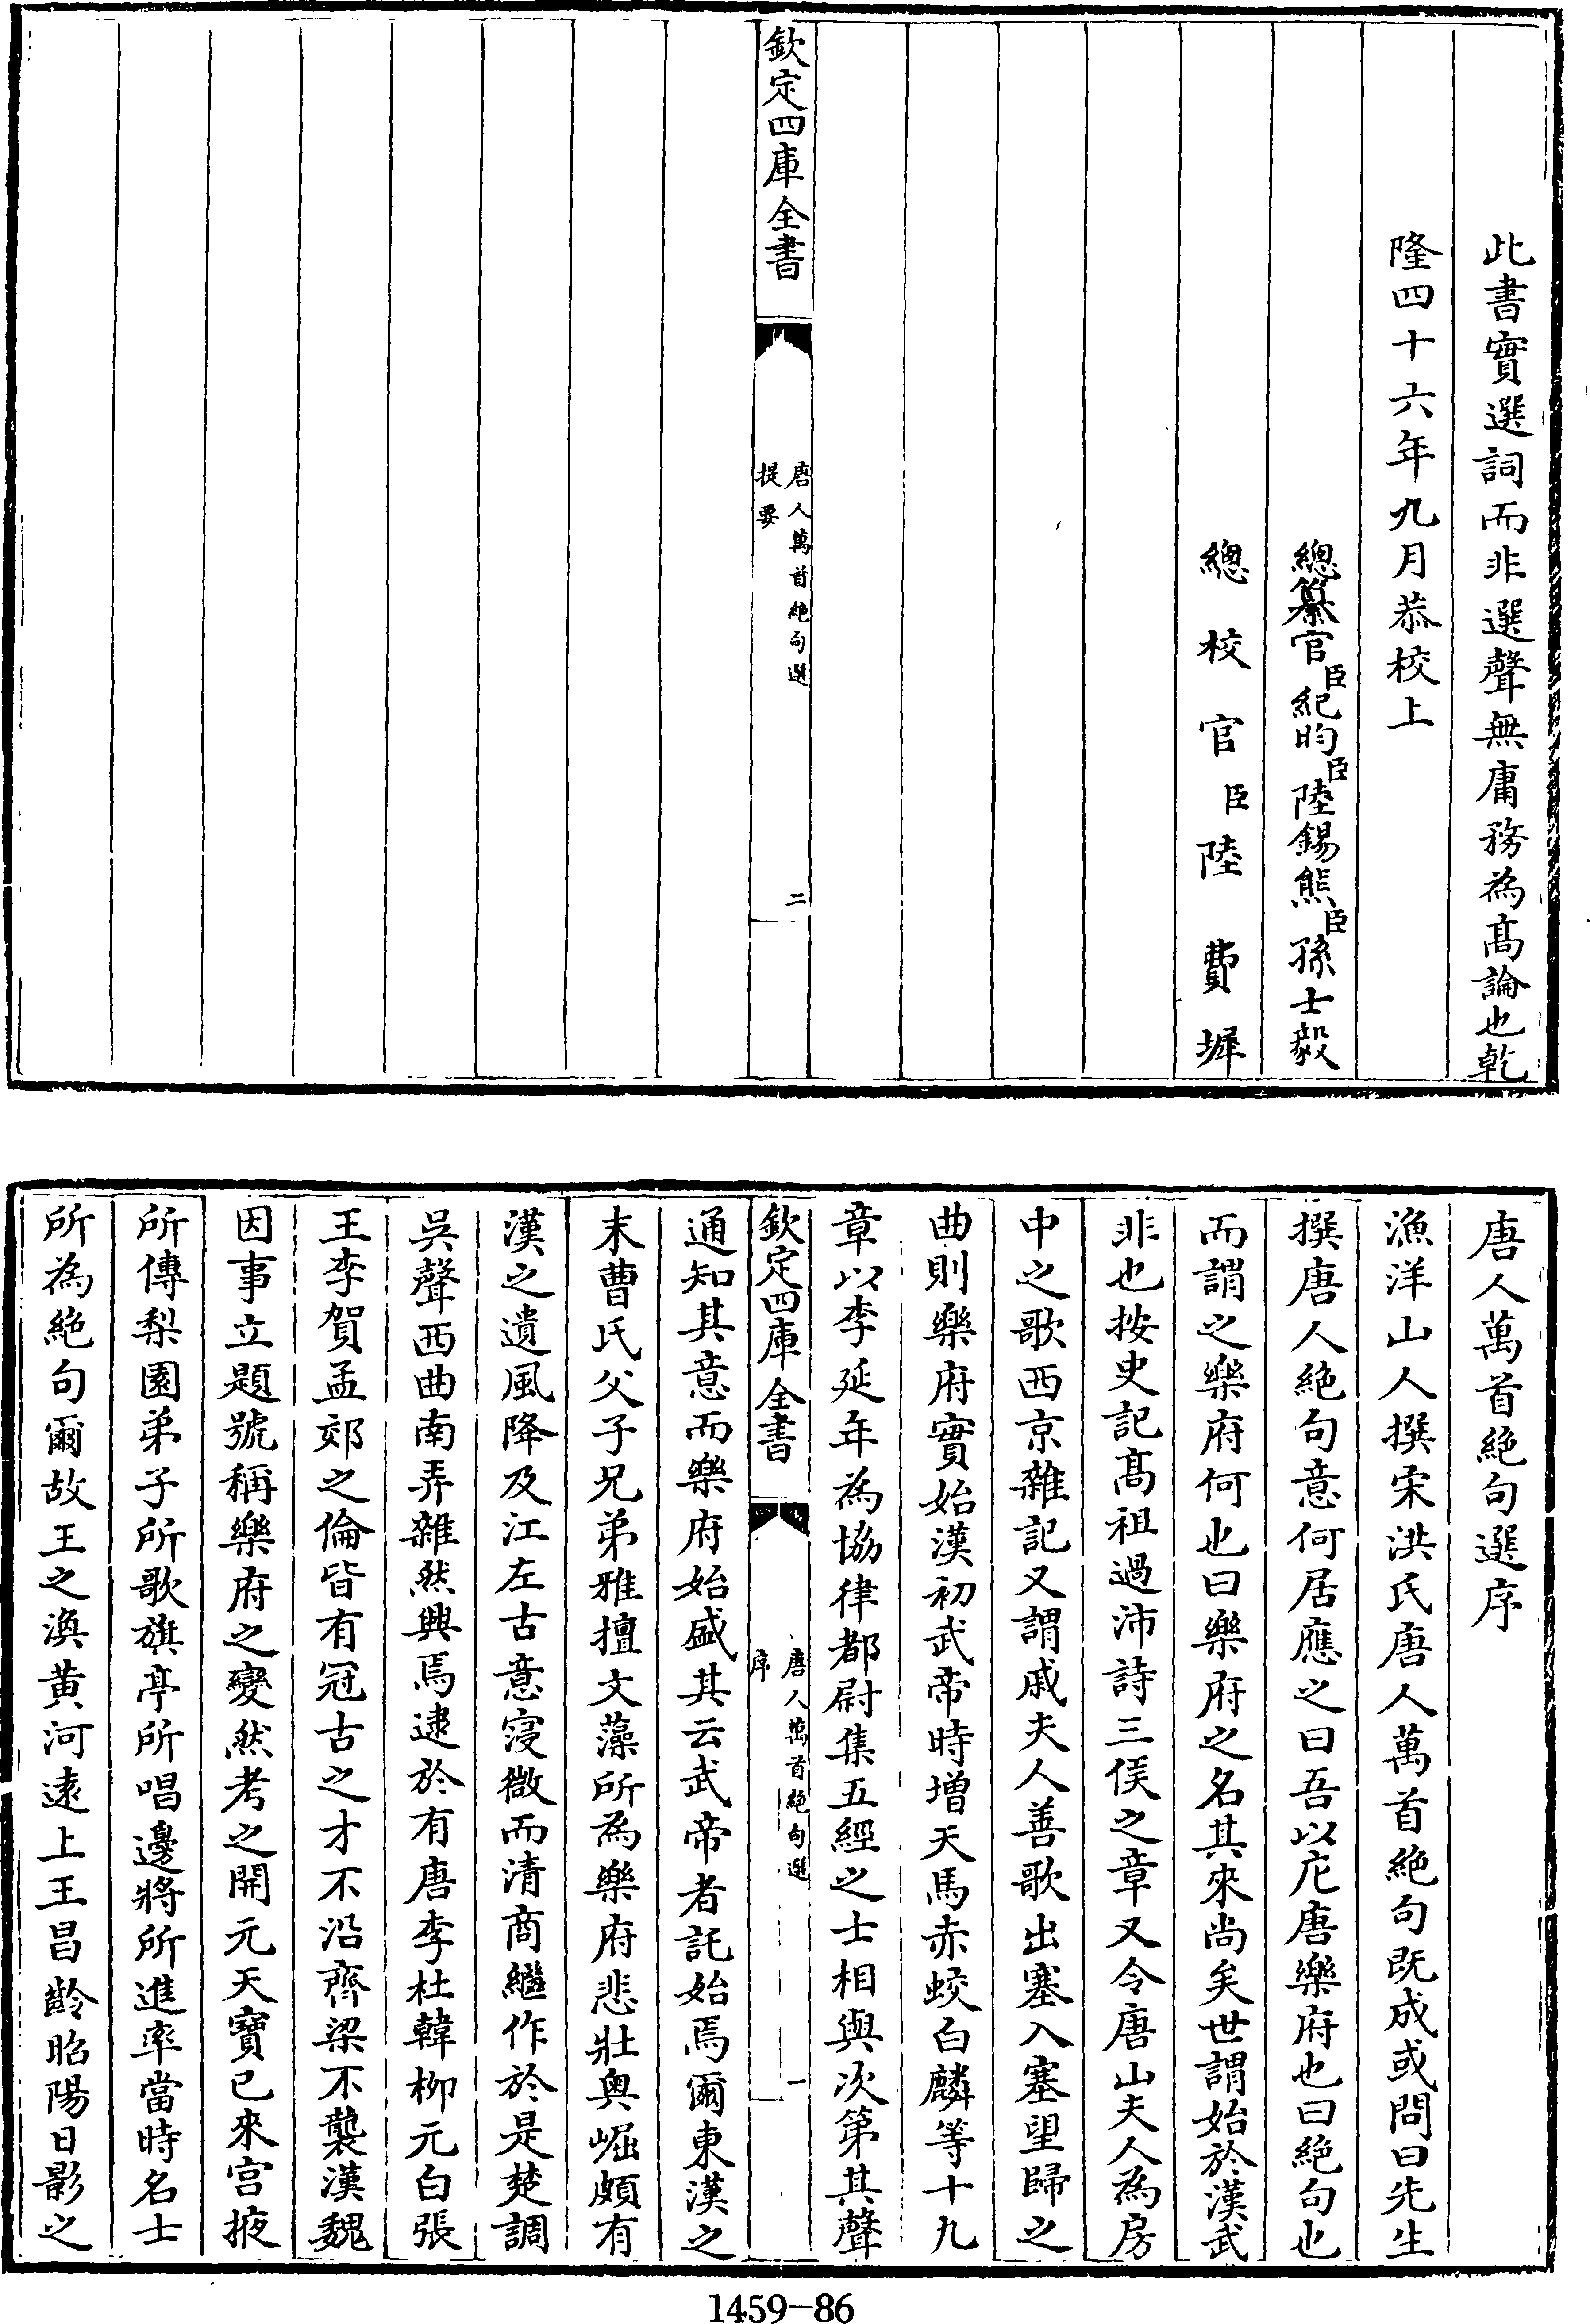 此書實選詞而非選聲無庸務為髙論也乾
隆四十六年九月恭校上
總纂官臣紀昀臣陸錫熊臣孫士毅
總校官臣陸費墀
欽定四庫全書
唐人萬首絶句選
提要
二
唐人萬首絶句選序
漁洋山人撰宋洪氏唐人萬首絶句既成或問曰先生
撰唐人絶句意何居應之曰吾以庀唐樂府也曰絶句也
而謂之樂府何也曰樂府之名其來尚矣世謂始於漢武
非也按史記髙祖過沛詩三侯之章又令唐山夫人為房
中之歌西京雜記又謂戚夫人善歌出塞入塞望歸之
曲則樂府實始漢初武帝時增天馬赤蛟白麟等十九
章以李延年為協律都尉集五經之士相與次第其聲
欽定四庫全書
唐人萬首絶句選
序
一
通知其意而樂府始盛其云武帝者託始焉爾東漢之
末曹氏父子兄弟雅擅文藻所為樂府悲壯奥崛頗有
漢之遺風降及江左古意寖微而清商繼作於是楚調
吳聲西曲南弄雜然興焉逮於有唐李杜韓柳元白張
王李賀孟郊之倫皆有冠古之才不沿齊梁不襲漢魏
因事立題號稱樂府之變然考之開元天寶已來宫掖
所傳梨園弟子所歌旗亭所唱邊將所進率當時名士
所為絶句爾故王之渙黄河逺上王昌齡昭陽日影之
1459-86